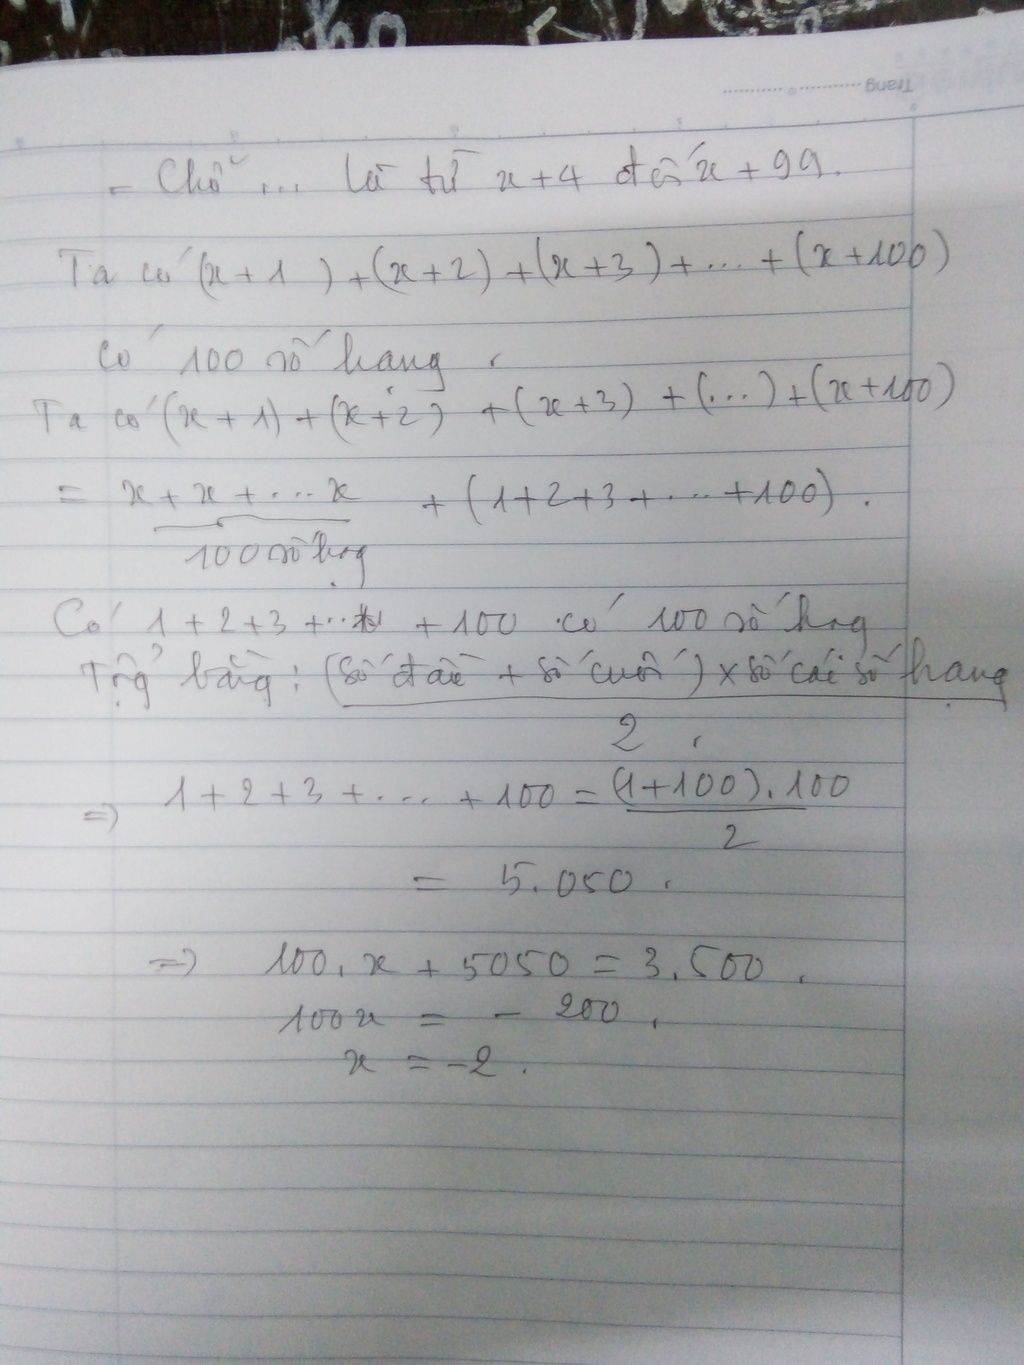 Trang
- Chỗ ... là từ x+4 đến x+99.
Ta có (x+1) + (x+2) + (x+3) + ... + (x+100)
có 100 số hạng.
Ta có (x+1) + (x+2) + (x+3) + (...) + (x+100)
= x + x + ... x + (1+2+3+ ... +100).
100 số hạng
Có 1+2+3+... +100 có 100 số hạng
Tổng bằng: (Số đầu + Số cuối) x Số các số hạng
2.
=> 1+2+3+ ... +100 = (1+100).100
2
= 5.050.
=> 100.x + 5050 = 3.500.
100x = - 200.
x = -2.